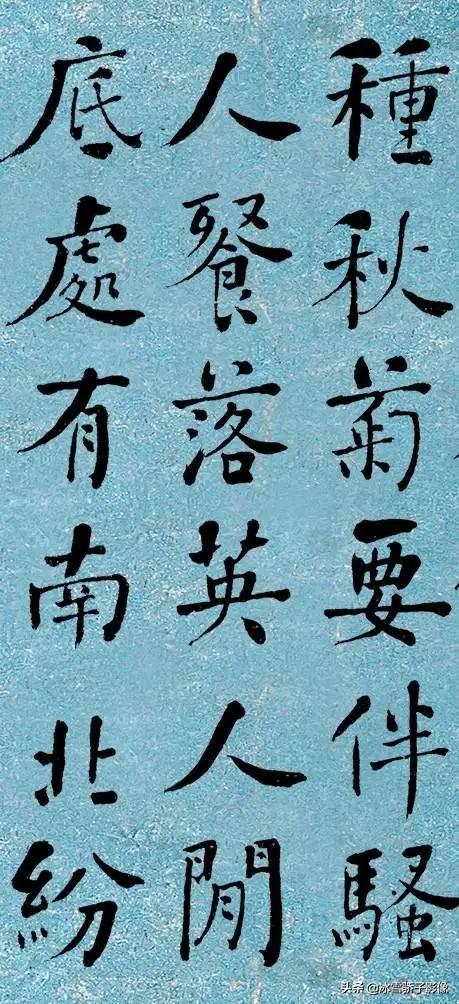 種秋菊要伴騷
人餐落英人間
底處有南北紛
头条 @冰雪骄子影像